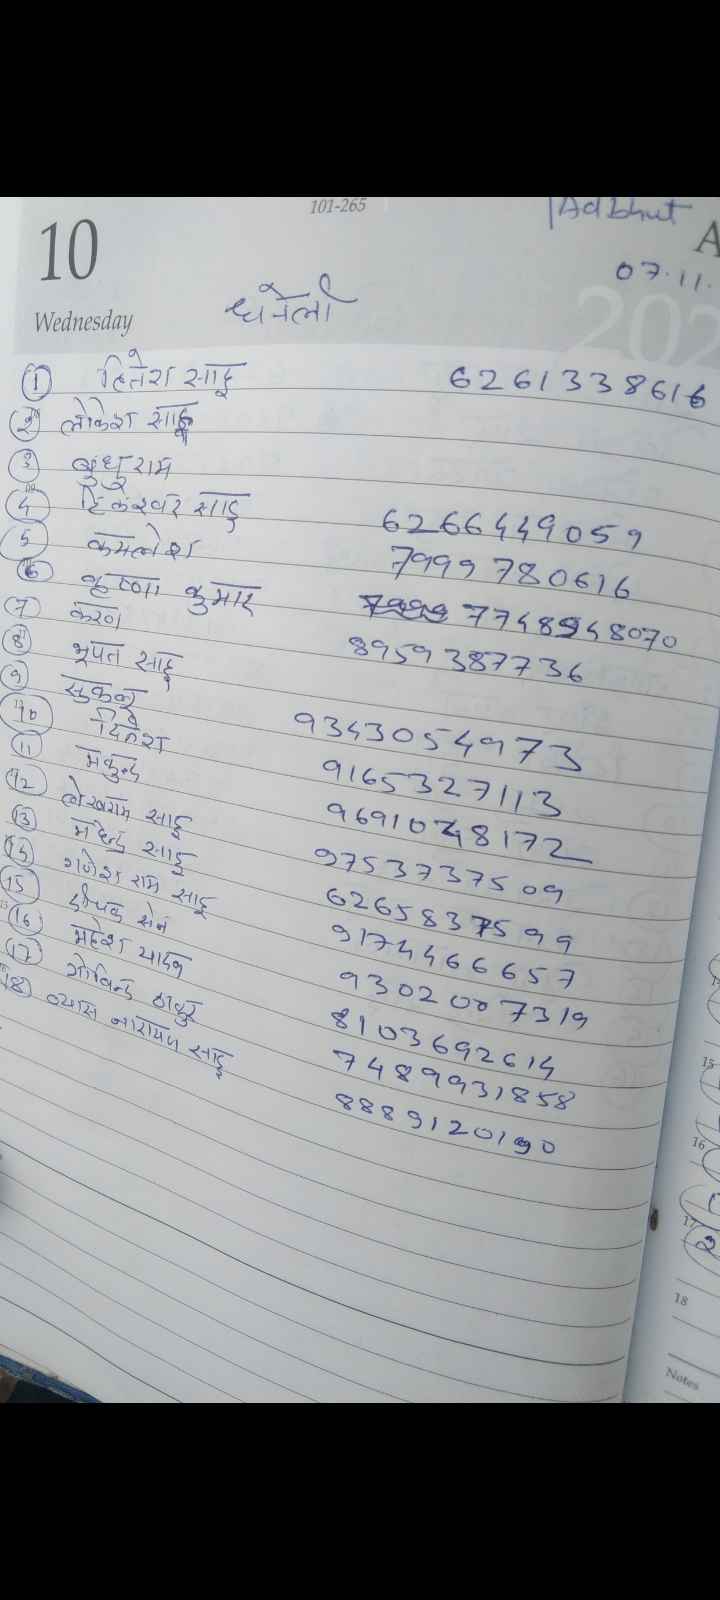 101-265
Adbhut
10
A
07.11.
Wednesday
धनेली
202
1 हितेश साहू 6261338616
2 लोकेश साहू
3 बुधराम
4 टिकेश्वर साहू 6266449059
5 कमलेश 7999780616
6 कृष्णा कुमार 7748948070
7 करण 8959387736
8 भूपत साहू
9 9343054973
10 दिनेश 9165327113
11 मकुन्द 9691048172
12 लेखराम साहू 9753737509
13 महेन्द्र साहू 6265837599
14 गणेश राम साहू 9174466657
15 दीपक सेन 9302007319
16 महेश यादव 8103692614
17 गोविन्द ठाकुर 7489931858
18 व्यास नारायण साहू 8889120190
15
16
17
18
Notes